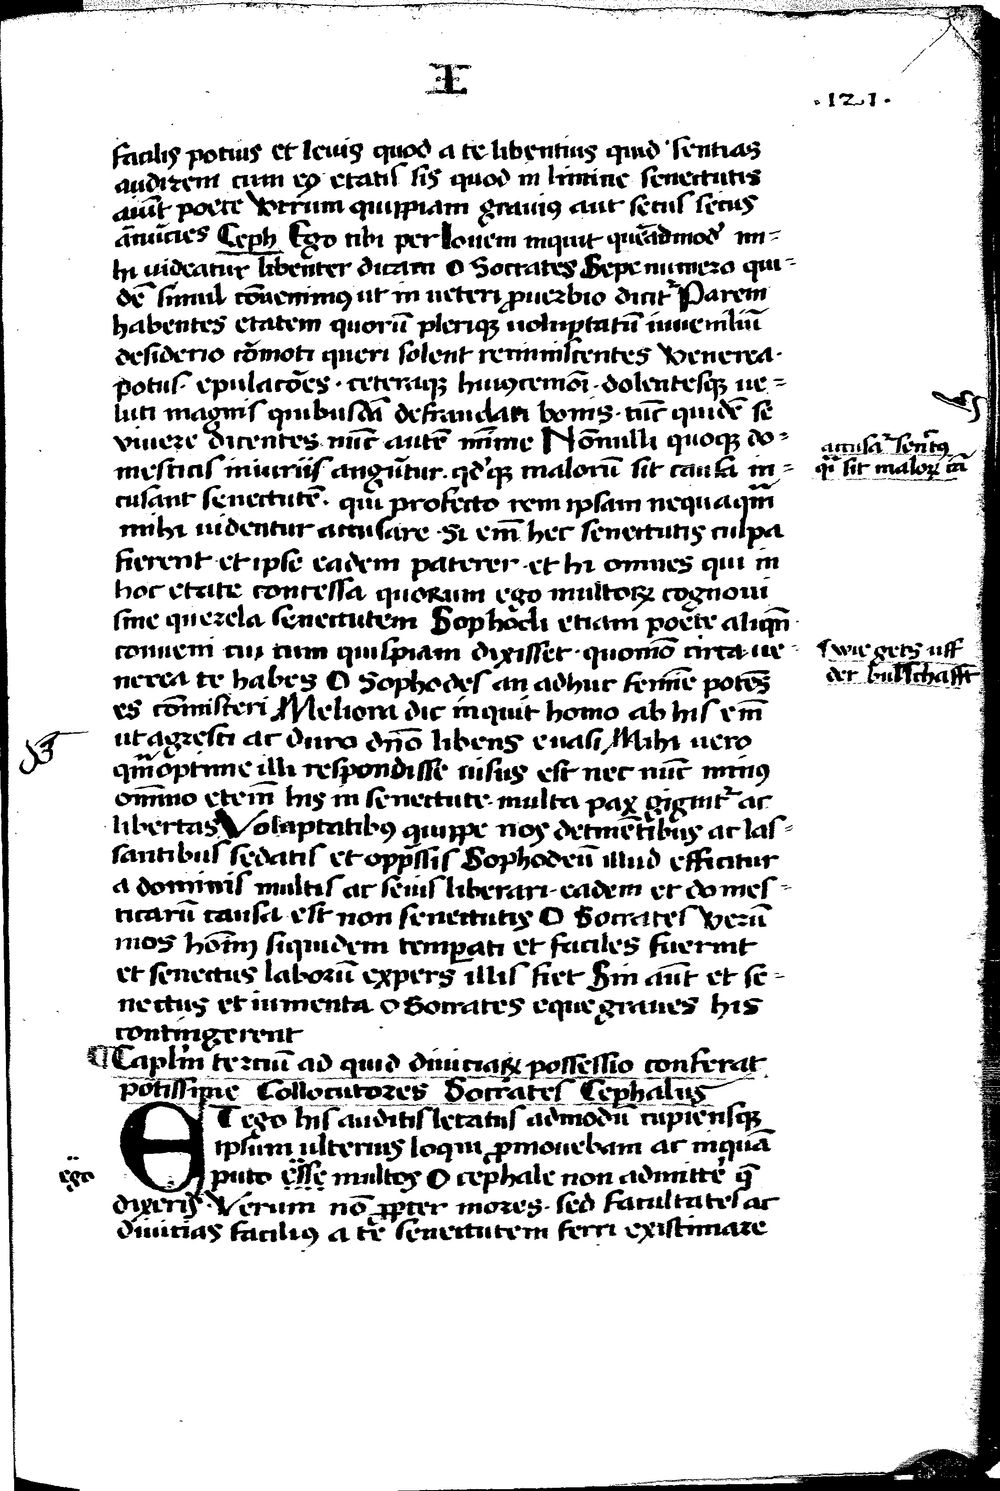 I
·121·
facilis potius et levis quod a te libentius quid sentias
audirem cum eo etatis sis quod in limine senectutis
aiūt poete Vtrum quippiam gravius aut secus
ānūcies Ceph Ego tibi per Iovem inquit quēadmodū mi=
hi uideatur libenter dicam O Socrates Sepenumero qui=
dē simul cōvenimus ut in ueteri ꝓuerbio dicit᷑ Parem
habentes etatem quorū pleriqꝫ uoluptatū iuueniliū
desiderio cōmoti queri solent reminiscentes Venerea·
potus· epulacōes· ceteraqꝫ huiuscemōi· dolentesqꝫ ue=
luti magnis quibusdā defraudati bonis· tūc quidē se
vivere dicentes· nūc autē mīme Nōnulli quoqꝫ do=
mesticis iniuriis angūtur· qd'qꝫ malorū sit causa in=
cusant senectutē· qui profecto rem ipsam nequaqm̄
mihi uidentur accusare· Si em̄ hec senectutis culpa
fierent· et ipse eadem paterer· et hi omnes qui in
hoc etate concessa quorum ego multoꝝ cognoui
sine querela senectutem Sophocli etiam poete aliqn̄·
conueni cui cum quispiam dixisset· quomō circa ue=
nerea te habes O Sophocles an adhuc femīe potes
es cōmisceri Meliora dic inquit homo ab his em̄
ut agresti ac duro dn̄o libens euasi Mihi uero
qm̄ optime illi respondisse uisus est nec nūc minus
omīno etem̄ his in senectute· multa pax gignit᷑ ac
libertas Voluptatibus quippe nos detinētibus ac las=
santibus sedatis et opp̄ssis Sophocleū illud efficitur
a dominis multis ac seuis liberari· eadem et domes=
ticarū causa est non senectutis O Socrates Verū
mos hoīm siquidem temꝑati et faciles fuerint
et senectus laborū expers illis fiet Sin aūt et se=
nectus et iumenta o Socrates eque graues his
contingerent
¶ Caplm̄ terciū ad quid diuiciaꝝ possessio conferat
potissime Collocutores Socrates Cephalus
ET ego his auditis letatus admodū cupiensqꝫ
ipsum ulterius loqui ꝓmouebam ac inquā
puto esse multos O cephale non admitte' q̄
dixeris· Verum nō ꝓpter mores· sed facultates ac
diuicias facilius a te senectutem ferri existimare
accusat᷑ senect9
qd' sit maloꝝ cā
wie gets uff
der bulschafft
ego